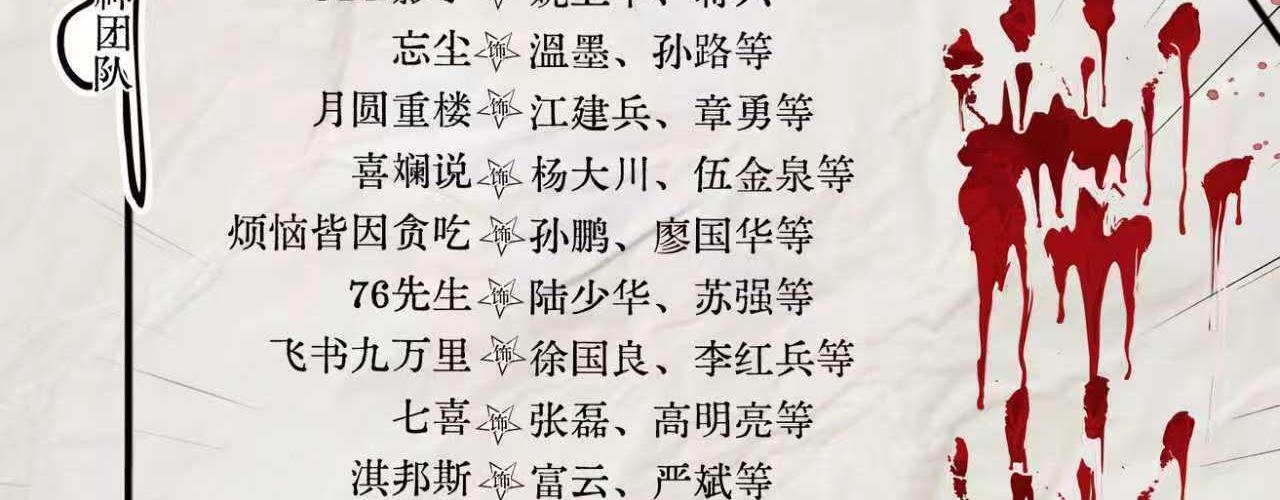 团队
忘尘 饰 溫墨、孙路等
月圆重楼 饰 江建兵、章勇等
喜斓说 饰 杨大川、伍金泉等
烦恼皆因贪吃 饰 孙鹏、廖国华等
76先生 饰 陆少华、苏强等
飞书九万里 饰 徐国良、李红兵等
七喜 饰 张磊、高明亮等
淇邦斯 饰 富云、严斌等